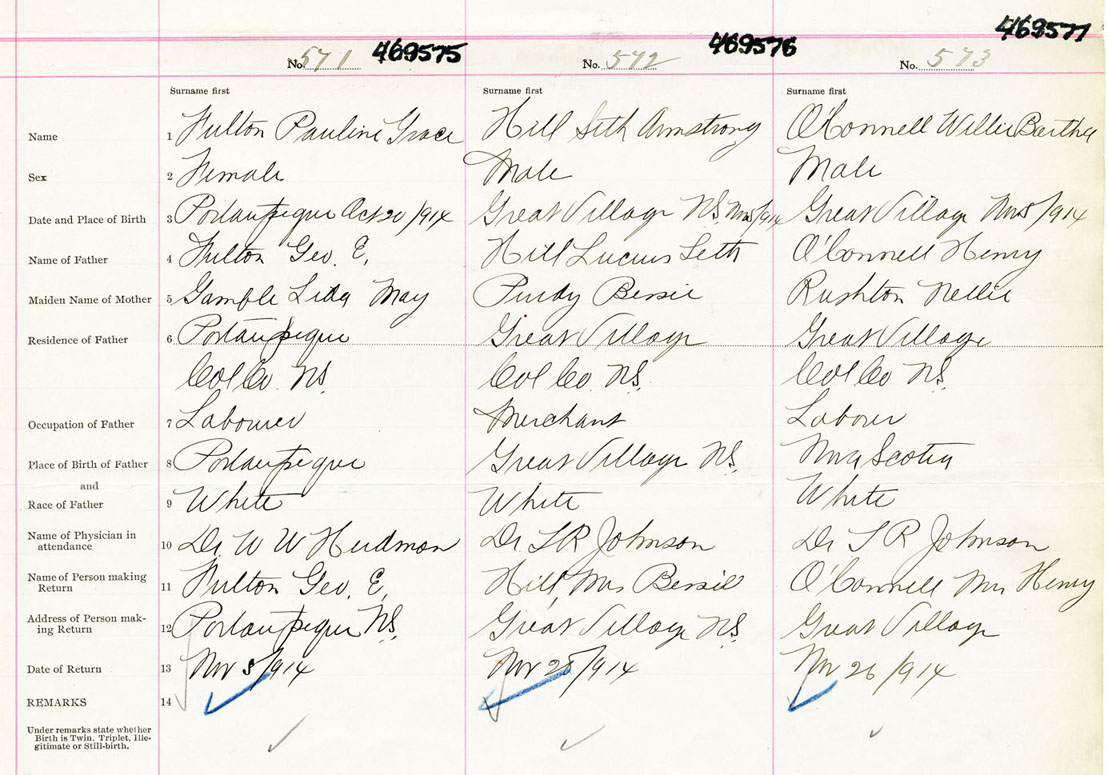 469575 469576 469577
No. 571 No. 572 No. 573
Surname first Surname first Surname first
Name 1 Fulton Pauline Grace Hill Seth Armstrong O'Connell Willie Bartha
Sex 2 Female Male Male
Date and Place of Birth 3 Portaupique Oct 20/914 Great Village NS. /914 Great Village /914
Name of Father 4 Fulton Geo. E. Hill Lucius Seth O'Connell Henry
Maiden Name of Mother 5 Gamble Lida May Purdy Bessie Rushton Nellie
Residence of Father 6 Portaupique Great Village Great Village
Col Co. NS. Col Co. NS. Col Co NS.
Occupation of Father 7 Labourer Merchant Labourer
Place of Birth of Father 8 Portaupique Great Village NS. Nova Scotia
and
Race of Father 9 White White White
Name of Physician in
attendance 10 Dr W W Dr T R Johnson Dr T R Johnson
Name of Person making
Return 11 Fulton Geo. E. Hill, Mrs Bessie O'Connell Mrs Henry
Address of Person mak-
ing Return 12 Portaupique NS. Great Village NS. Great Village
Date of Return 13 Nov 3/914 Nov 28/914 Nov 26/914
REMARKS 14
Under remarks state whether
Birth is Twin. Triplet, Ille-
gitimate or Still-birth.